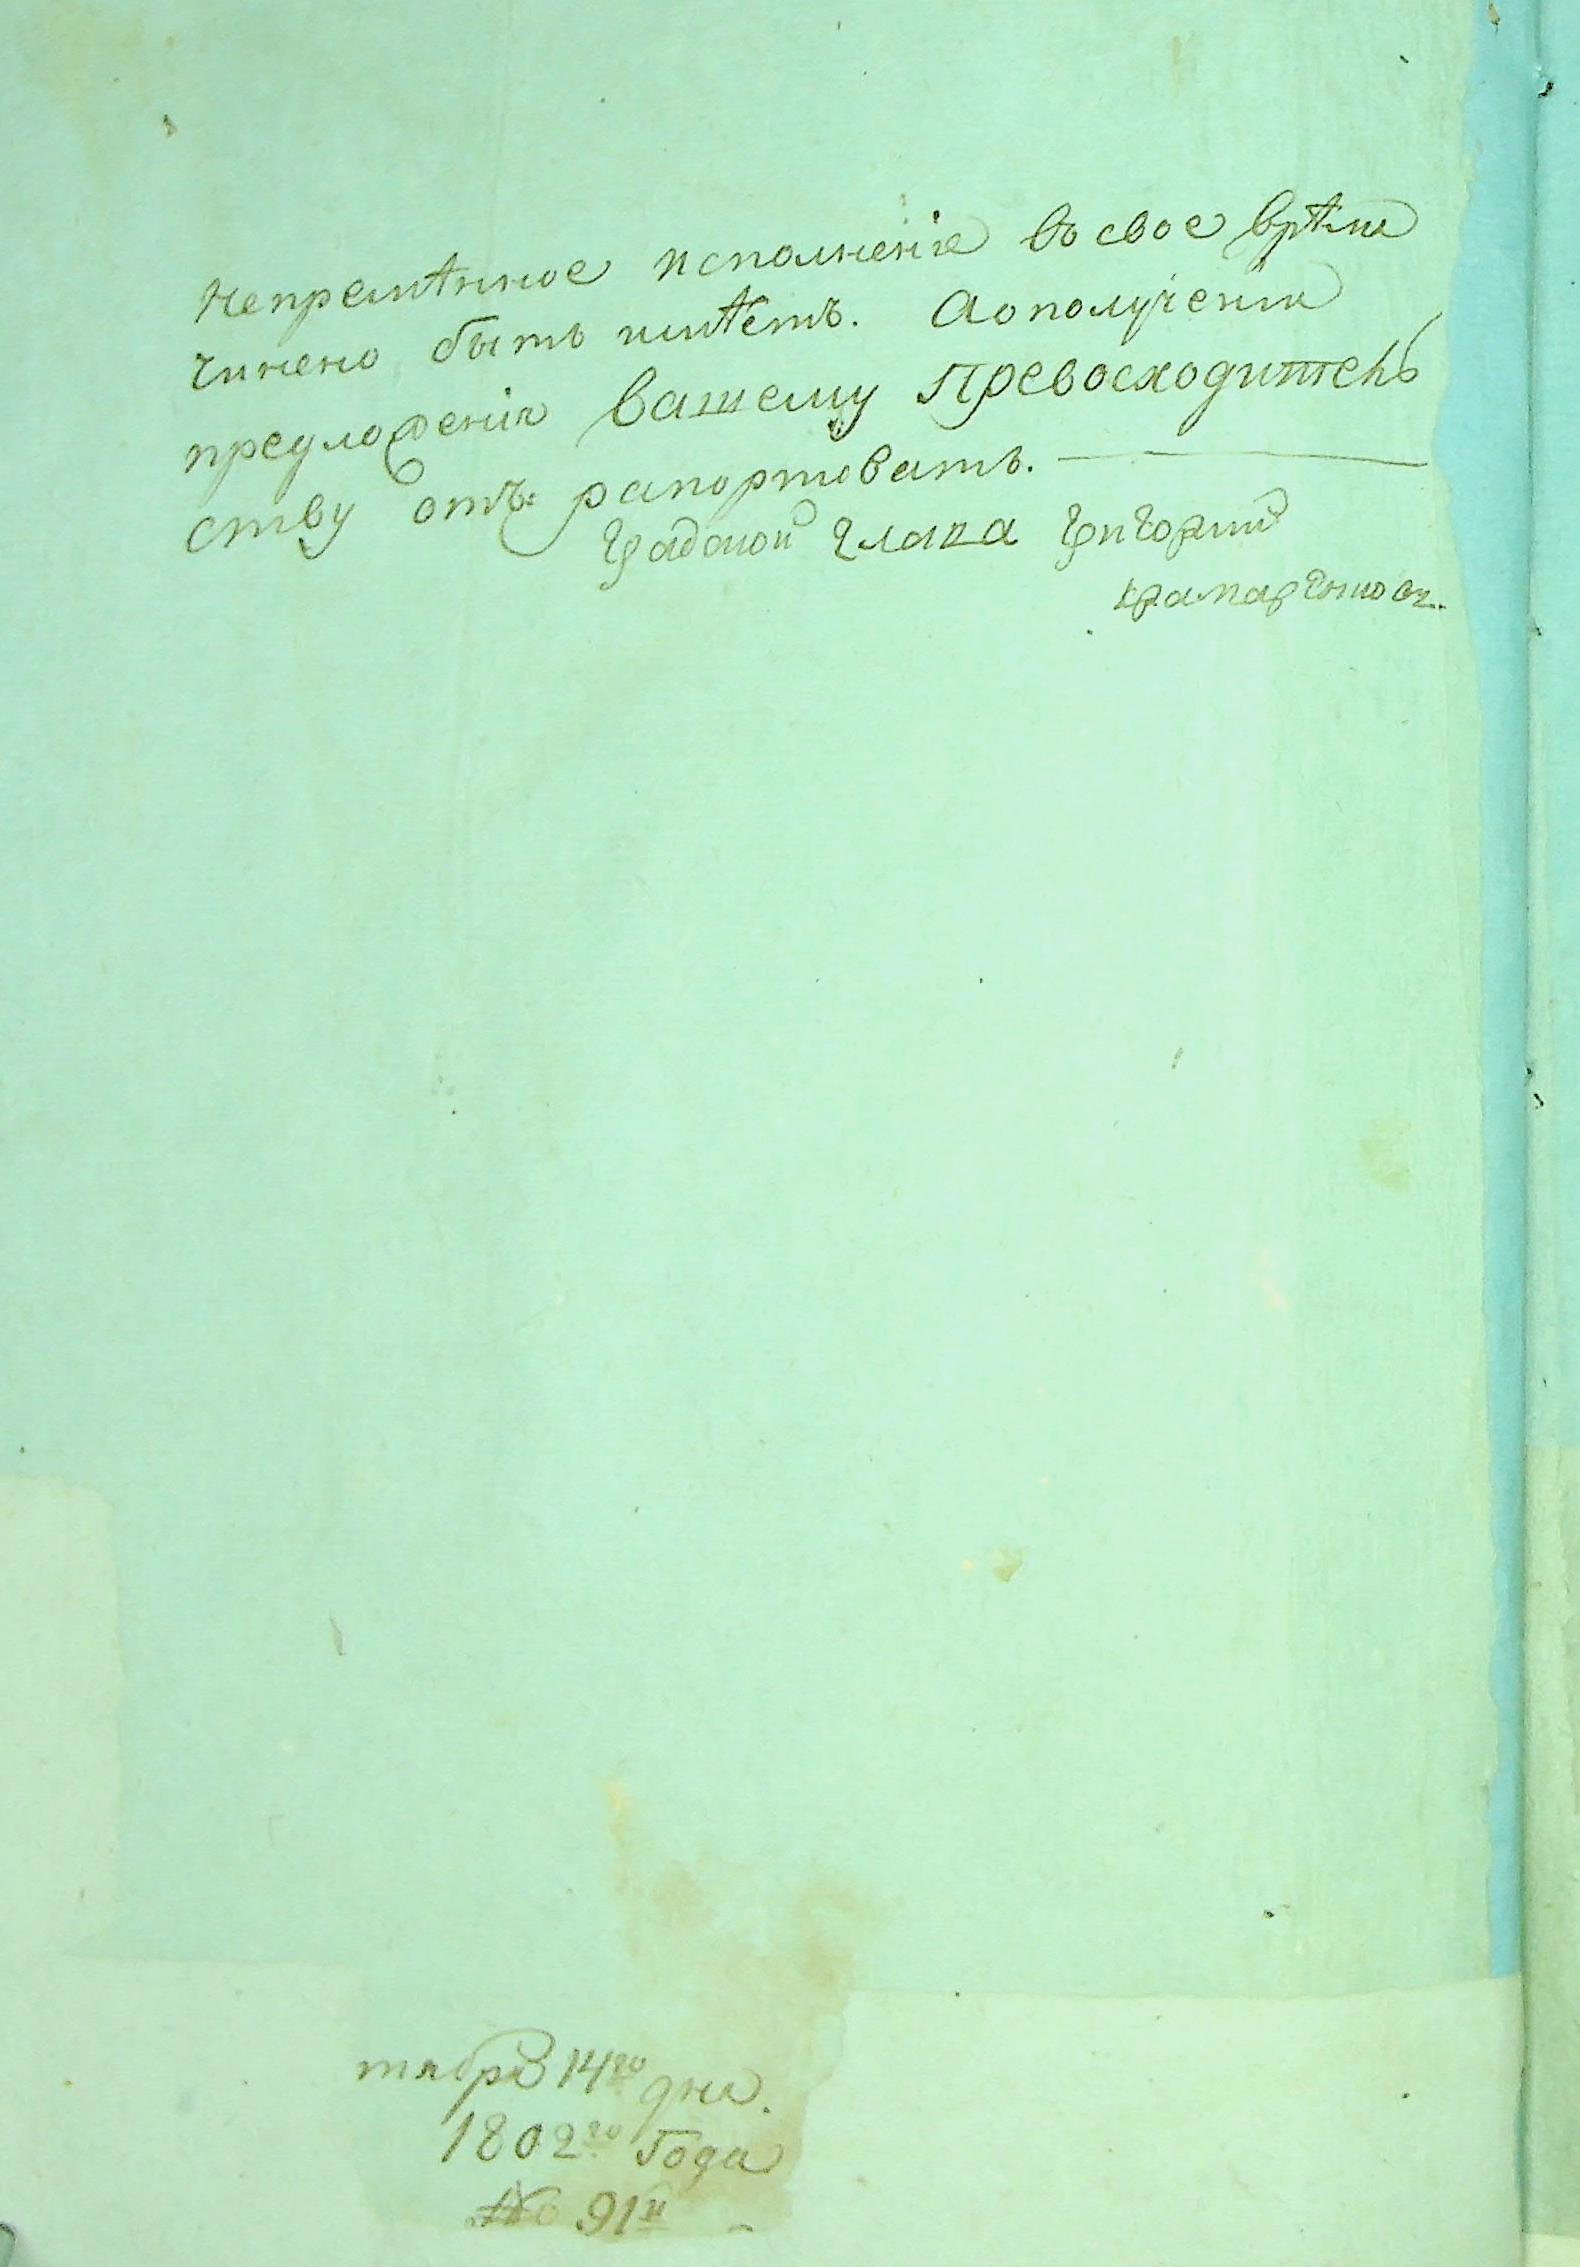 непремѣнное исполненіе во свое врѣмя
чинено быть имѣетъ. Аополученіи
предложенія вашему Превосходитель
ству отъ: рапортовать.
Градской глава Григорий
тября 14го дня.
1802го Года
№ 91й